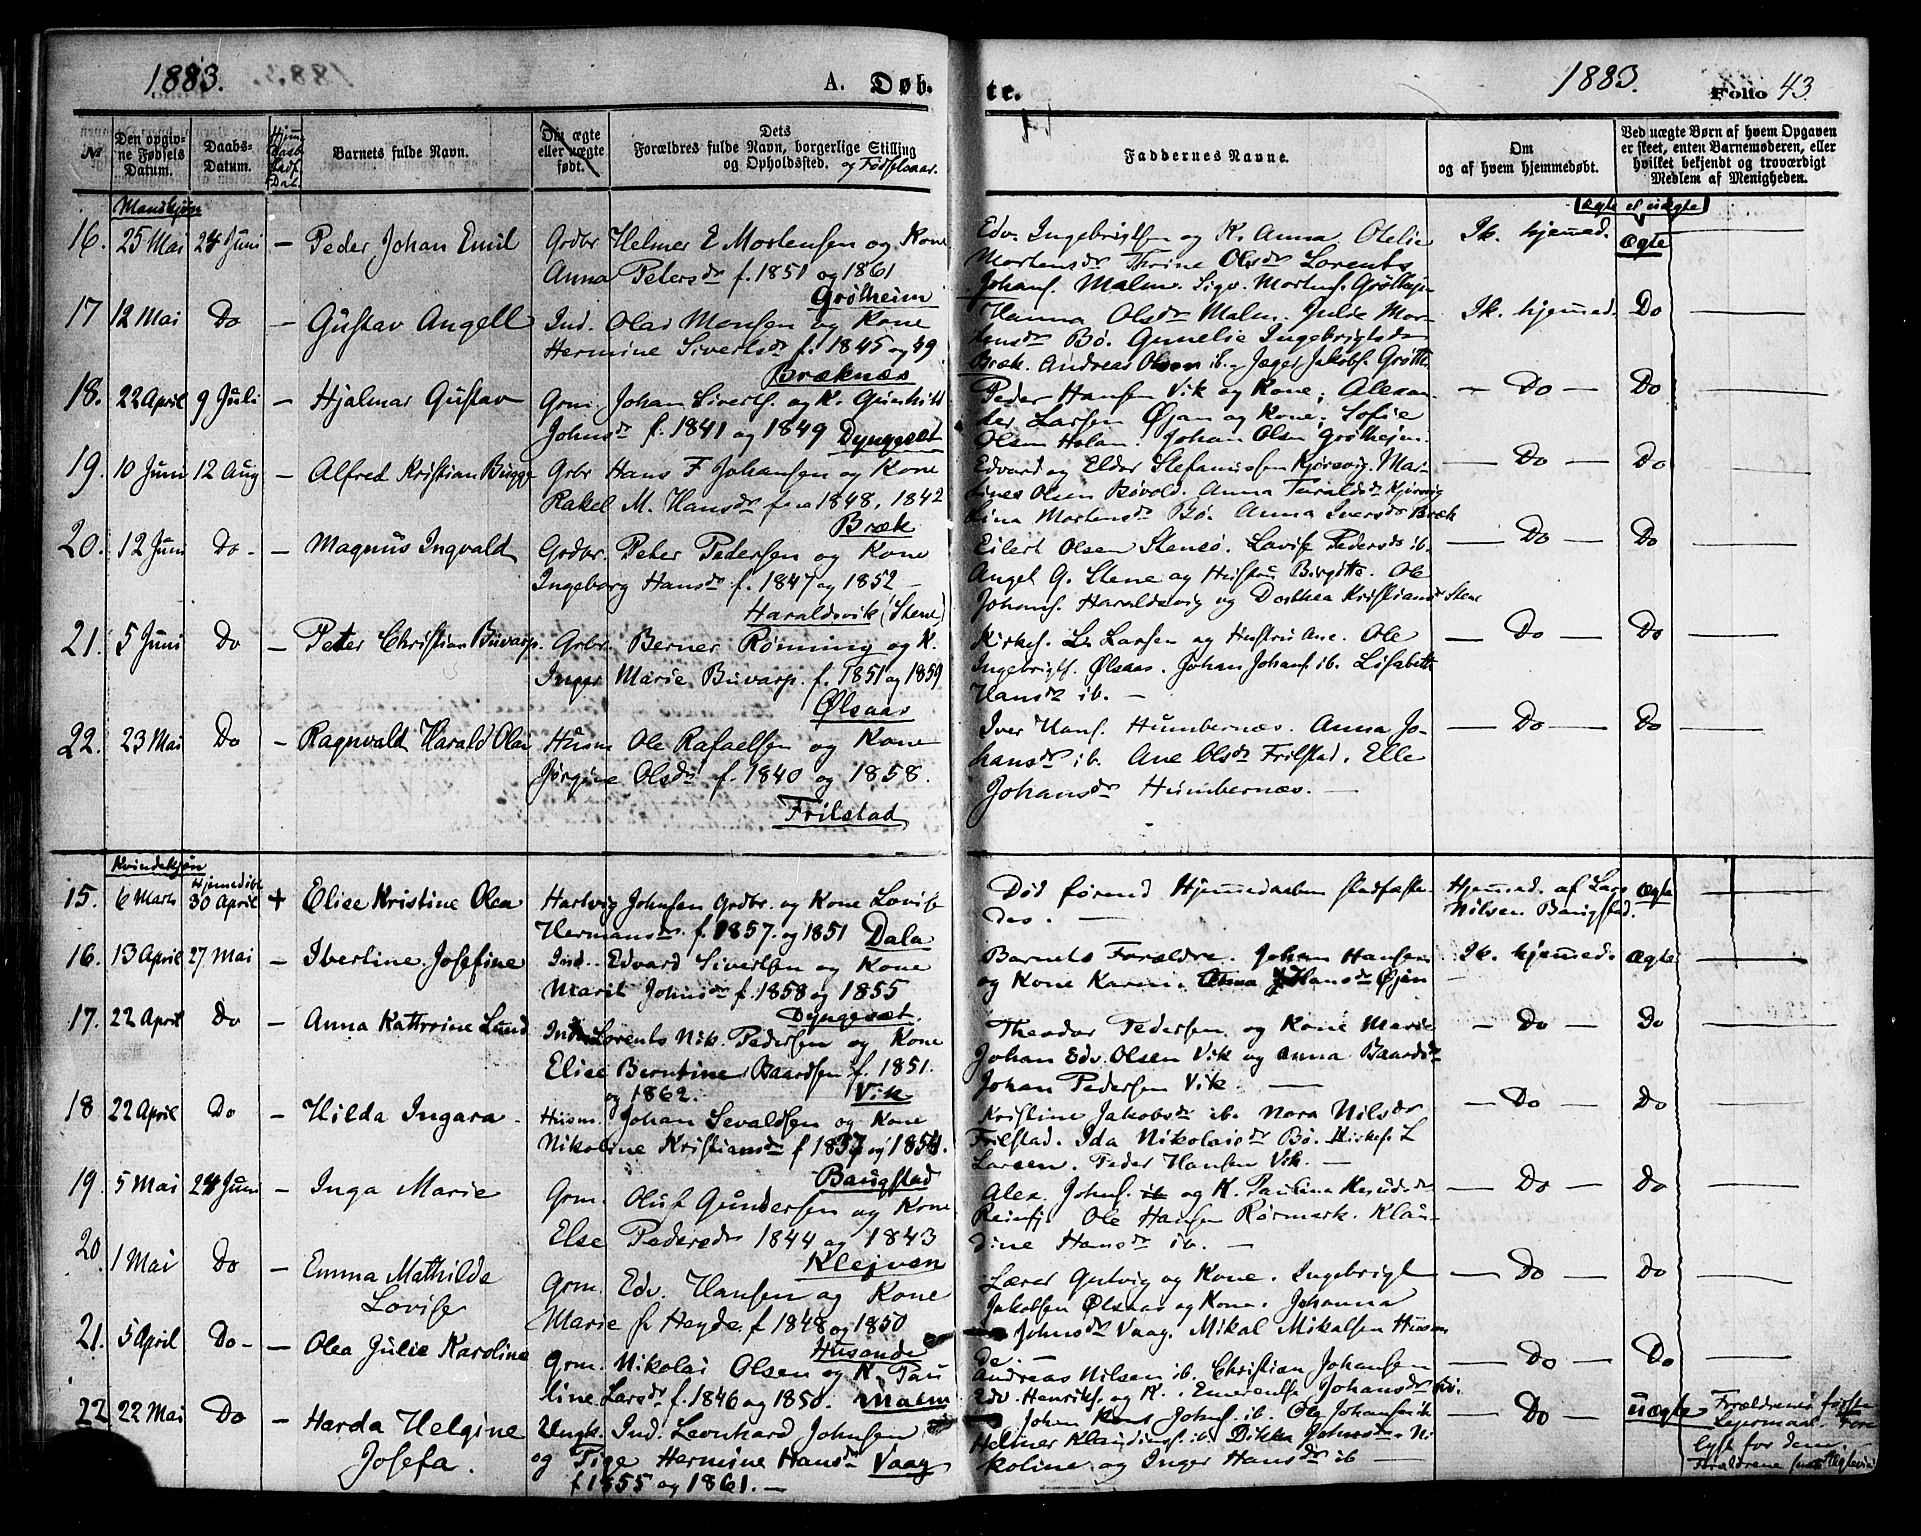 1883.
A. Døb-
te.
1883.
Folio 43
№
Den opgiv-
ne Fødsels
Datum.
Daabs-
Datum.
Barnets fulde Navn.
Om ægte
eller uægte
født.
Dets
Forældres fulde Navn, borgerlige Stilling
og Opholdssted. og Fødselsaar.
Faddernes Navne.
Om
og af hvem hjemmedøbt.
Ved uægte Børn af hvem Opgaven
er skeet, enten Barnemoderen, eller
hvilket bekjendt og troværdigt
Medlem af Menigheden.
Mandkjøn
Ægte el uægte
16. 25 Mai 24 Juni – Peder Johan Emil
Grdbr Helmer E Mortensen og Kone
Anna Petersdr f. 1851 og 1861
Grøtheim
Edv. Ingebrigtsen og K. Anna Otelie
Mortensdr Thrine Olsdr Lorents
Johans. Malm. Sigv. Mortens. Grøthejm
Ik. hjemmed. ægte
17 12 Mai Do – Gustav Angell
Ind. Olai Monsen og Kone
Hermine Sivertsdr f. 1845 og 49
Bræknæs
Hanna Olsdr Malm. Julie Mor-
tensdr Bø. Annelie Ingebrigtsdr
Bræk. Andreas Olsen ib. Jæger Jakobs. Grøtte
Ik. hjemmed. Do
18. 22 April 9 Juli – Hjalmar Gustav
Grm. Johan Siverts. og K. Gunhild
Johnsdr f. 1841 og 1849 Dyngesæt
Peder Hansen Vik og Kone; Alexan-
der Larsen Øjan og Kone; Sofie
Olsen Holan. Johan Olsen Grøthejm.
– Do – Do
19. 10 Juni 12 Aug – Alfred Kristian Bugge
Grbr Hans F Johansen og Kone
Rakel M. Hansdr f. 1848, 1842
Bræk
Edvard og Eldor Stefanussen Kjørsvig. Mar-
tines Olsen Bøvold. Anna Taraldsdr Kjørsvig
Lina Mortensdr Bø. Anna Iversdr Bræk
– Do – Do
20. 12 Juni Do – Magnus Ingvald
Grdbr. Peter Pedersen og Kone
Ingeborg Hansdr f. 1847 og 1852 –
Haraldsvik (Stene)
Eilert Olsen Stensø. Lovise Pedersdr ib.
Angel G. Stene og Hustru Birgitte. Ole
Johans. Haraldsvig og Dorthea Kristiansdr Stene
– Do – Do
21. 5 Juni Do – Peter Christian Buvarp.
Grbr. Berner Rønning og K.
Inger Marie Buvarp. f. 1851 og 1859
Ølsaas
Kirkes. L. Larsen og Hustru Ane. Ole
Ingebrigts. Ølsaas. Johan Johans. ib. Lisabeth
Hansdr ib. –
– Do – Do
22. 23 Mai Do – Ragnvald Harald Olai
Husm Ole Rafaelsen og Kone
Jørgine Olsdr f. 1840 og 1858.
Frilstad
Iver Hans. Humbernæs. Anna Jo-
hansdr ib. Ane Olsdr Frilstad. Elle
Johansdr Humbernæs. –
– Do – Do
Kvindekjøn
15. 6 Marts Hjemmedøbt
30 April + Elise Kristine Olea
Hartvig Johnsen Grdbr. og Kone Lovise
Hermansdr. f. 1857. og 1851 Dala
Død førend Hjemmedaaben stadfæste-
des. –
Hjemmed. af Lars
Nilsen Baugstad. ægte
16. 13 April 27 Mai – Iberline Josefine
Ind. Edvard Sivertsen og Kone
Marit Johnsdr f. 1858 og 1855
Dyngesæt.
Barnets Forældre. Johan Hansen
og Kone Karen. Anna J. Hansdr Øjan
Ik. hjemmed. ægte
17. 22 April Do – Anna Kathrine Lund
Indr Lorents Nik. Pedersen og Kone
Elise Berntine Baardsen f. 1851.
og 1862. Vik
Theodor Pedersen og Kone Marie
Johan Edv. Olsen Vik og Anna Baardsdr
Johan Pedersen Vik. –
– Do – Do
18 22 April Do – Hilda Ingara.
Husm. Johan Sevaldsen og Kone
Nikoline Kristiansdr f 1857 og 1854.
Baugstad
Kristine Jakobsdr ib. Nora Nilsdr
Frilstad. Ida Nikolaisdr Bø. Kirkes. L
Larsen. Peder Hansen Vik. –
– Do – Do
19. 5 Mai 24 Juni – Inga Marie
Grm. Oluf Gundersen og Kone
Else Pedersdr 1844 og 1843
Klejven
Alex. Johns. ib og K. Paulina Knudsdr
Reinfj. Ole Hansen Rørmark. Klau-
dine Hansdr ib. –
– Do – Do
20. 1 Mai Do – Emma Mathilde
Lovise
Grm. Edv. Hansen og Kone
Marie f. Heyde. f 1848 og 1850
Husande
Lærer Gutvig og Kone. Ingebrigt
Jakobsen Ølsaas og Kone. Johanna
Johnsdr Vaag. Mikal Mikalsen Husan
de. –
– Do – Do
21. 5 April Do – – Olea Julie Karoline
Grm. Nikolai Olsen og K. Pau
line Larsdr f. 1846 og 1850. Malm
Andreas Nilsen ib. Christian Johansen
Edv. Henriks. og K. Emerentse Johansdr
– Do – Do
22 22 Mai Do – Harda Helgine
Josefa.
Ungk. Ind. Leonhard Johnsen
og Pige Hermine Hansdr Vaag
f 1855 og 1861. –
Johan Johns. ib. Ole Johansen ib
Helmer Klaudius. ib. Dikka Johnsdr. Ni
koline og Inger Hansdr ib –
– Do – uægte
Forældrenes første
Leiermaal.
lyst for dem.
Forældrene